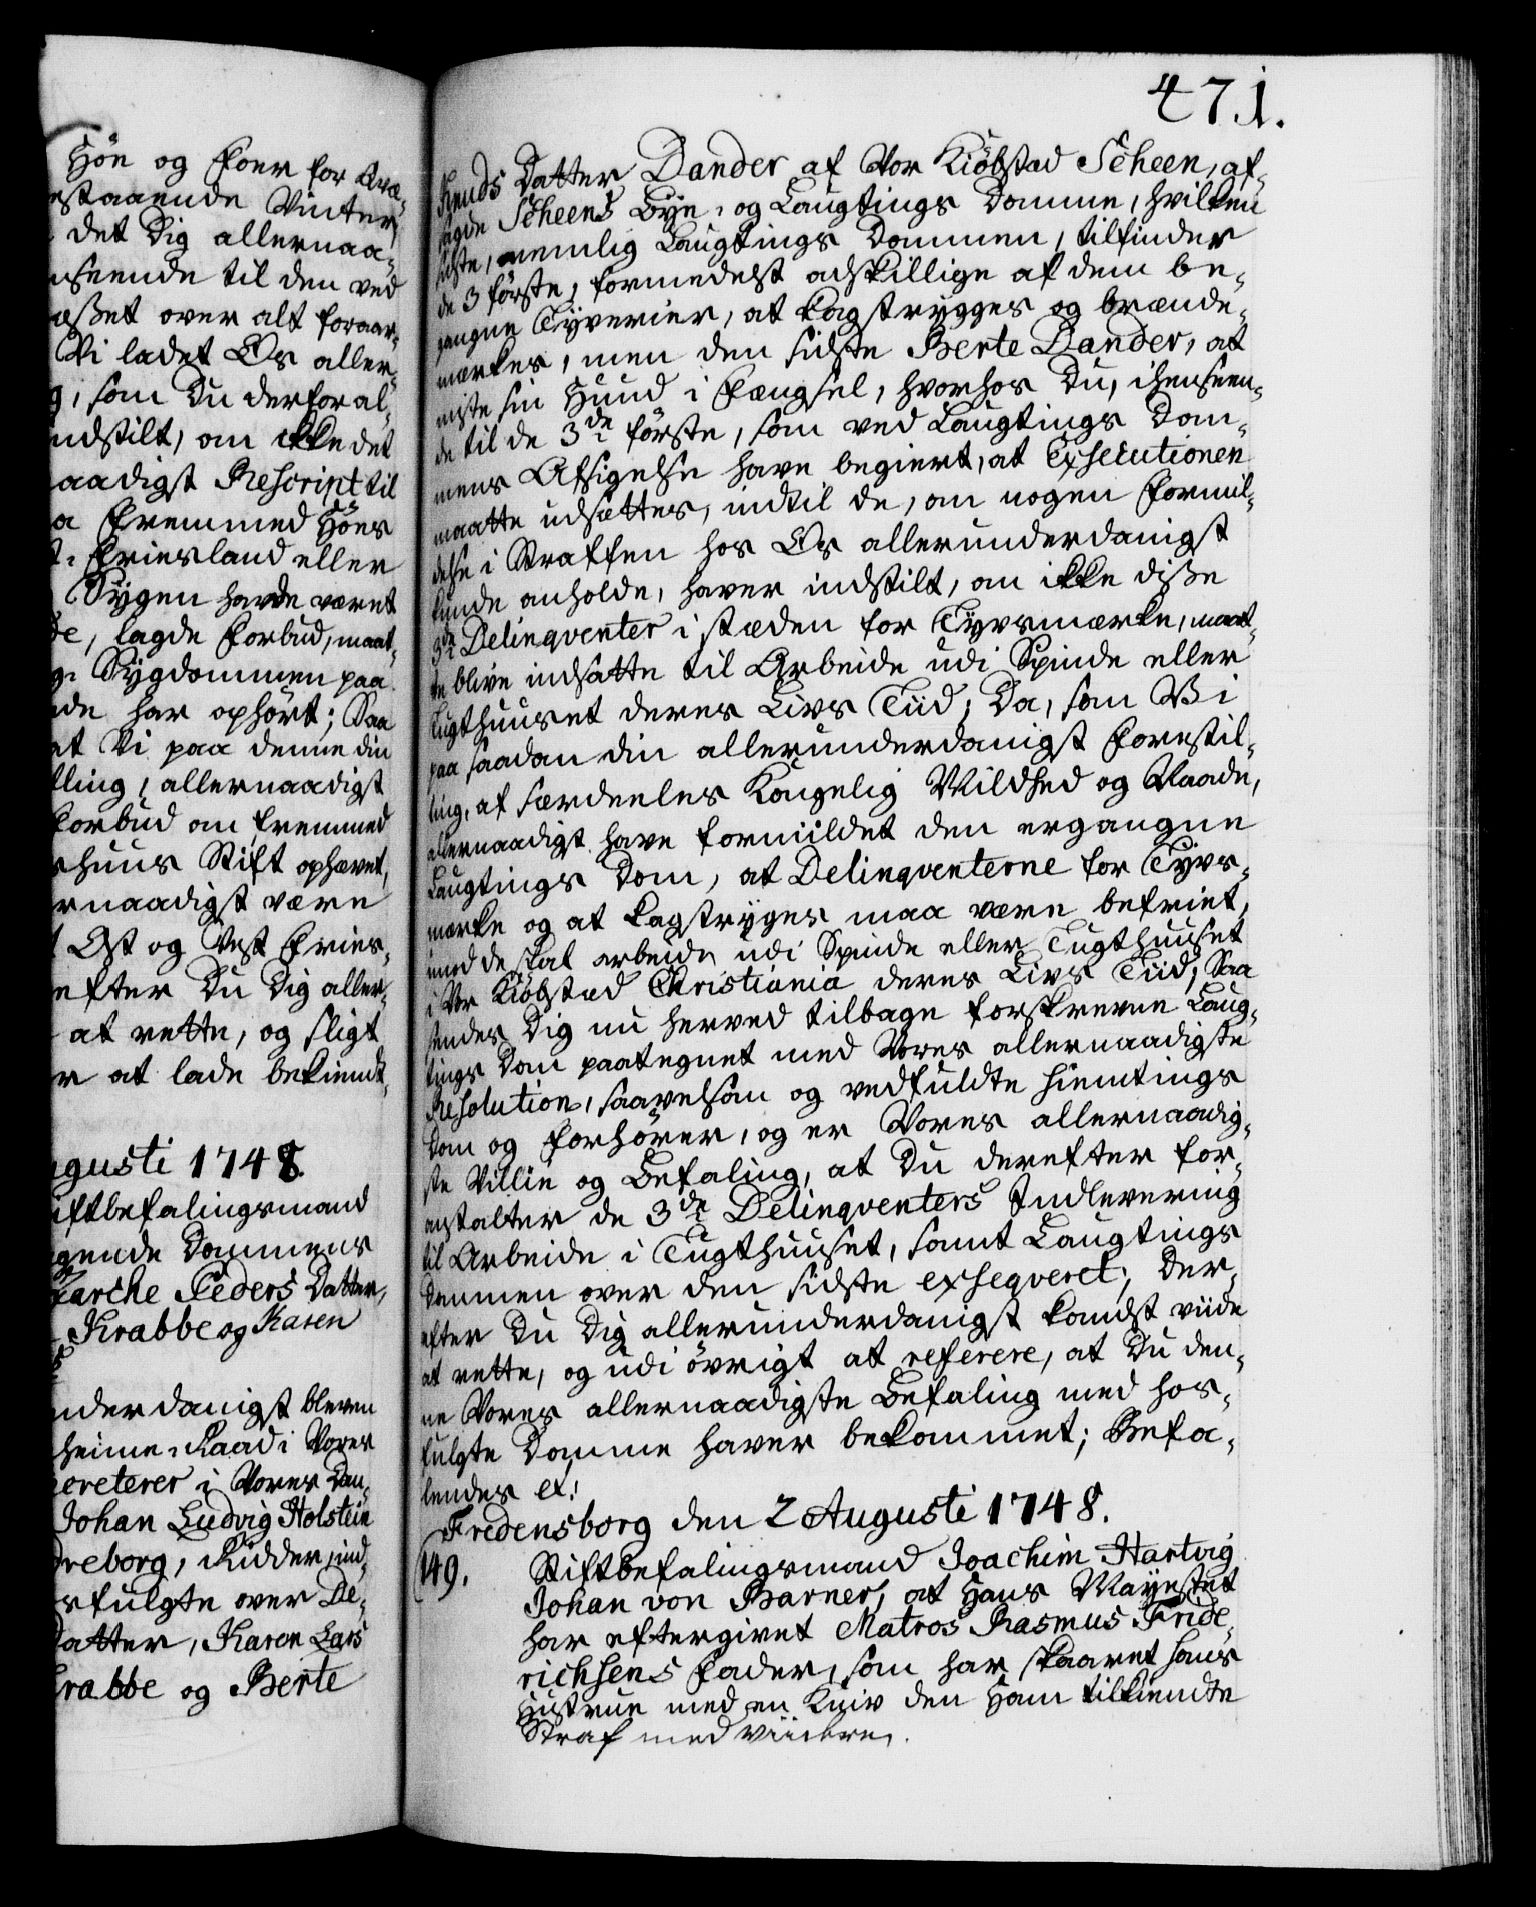 Høe og Foer for Qvæ-
estaaende Vinter,
det Dig allernaa-
nseende til den ved
æsset over alt foraar-
Vi ladet Os aller-
g, som Du derfor al-
ndstilt, om ikke det
aadigst Rescript til
a fremmed Høes
t- Friesland eller
Sÿgen havde været
de, lagde Forbud, maat-
g Sÿgdommen paa
de har ophørt; Saa
at Vi paa denne din
ling, allernaadigst
Forbud om fremmed
shuus Stift ophævet,
rnaadigst være
Ost og Vest Fries-
efter Du Dig aller-
at rette, og sligt
r at lade bekiendt-
gusti 1748.
iftbefalingsmand
gende Dommens
arche Peders Datter,
Krabbe og Karen
nderdanigst bleven
heime-Raad i Vores
ecreterer i Vores Dan-
Johan Ludvig Holstein
dreborg, Ridder, ind-
sfulgte over De-
Datter, Karen Lars
rabbe og Berte
471.
Knuds Datter Dander af Vor Kiöbstad Scheen, af-
sagde Scheens Bÿe- og Laugtings Domme, hvilken
sidste, nemlig Laugtings Dommen, tilfinder
de 3 förste, formedelst adskillige af dem be-
gangne Tÿverier, at kagstrÿges og brænde-
mærkes, men den sidste Berte Dander, at
miste sin Huud i Fængsel, hvorhos Du, i henseen-
de til de 3de förste, som ved Laugtings Dom-
mens Afsigelse have begiert, at Exsecutionen
maatte udsættes, indtil de, om nogen Formil-
delse i Straffen hos Os allerunderdanigst
kunde anholde, haver indstilt, om ikke disse
3de Delinqventer i stæden for Tÿvsmærke, maat-
te blive indsatte til Arbeide udi Spinde eller
Tugthuuset deres Livs Tiid; Da, som Vi
paa saadan din allerunderdanigst Forestil-
ling, af særdeeles Kongelig Mildhed og Naade,
allernaadigst have formildet den ergangne
Laugtings Dom, at Delinqventerne for Tÿvs-
mærke og at kagstrÿges maa være befriet,
imod de skal arbeide udi Spinde eller Tugthuuset
i Vor Kiöbstad Christiania deres Livs Tiid; Saa
sendes Dig nu herved tilbage forskrevne Laug-
tings Dom paategnet med Vores allernaadigste
Resolution, saavelsom og vedfuldte Hiemtings
Dom og Forhörer, og er Vores allernaadig-
ste Villie og Befaling, at Du derefter for-
anstalter de 3de Delinqventers Indlevering
til Arbeide i Tugthuuset, samt Laugtings
Dommen over den sidste exseqveret; Der-
efter Du Dig allerunderdanigst kandst viide
at rette, og udi övrigt at referere, at Du den-
ne Vores allernaadigste Befaling med hos-
fulgte Domme haver bekommet; Befa-
lendes et:
Fredensborg den 2 Augusti 1748.
149.
Stiftbefalingsmand Joachim Hartvig
Johan von Barner, at Hans Maÿestet
har eftergivet Matros Rasmus Fride-
richsens Fader, som har skaaret hans
Hustrue med en Kniv den Ham tilkiendte
Straf med viidere.